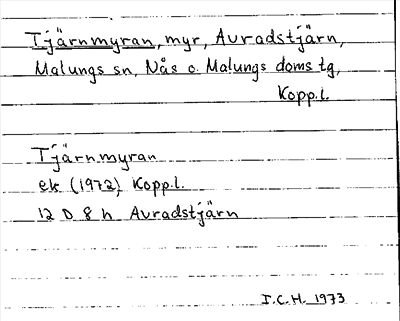 Tjärnmyran, myr, Avradstjärn,
Malungs sn, Nås o. Malungs doms.tg,
Kopp.l.
Tjärnmyran
ek (1972) Kopp.l.
12 D 8 h Avradstjärn
I.C.H. 1973